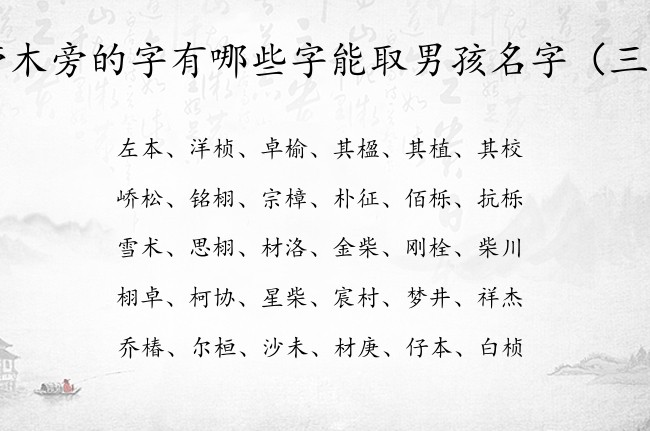 木旁的字有哪些字能取男孩名字（三
左本、洋桢、卓榆、其楹、其植、其校
峤松、铭栩、宗樟、朴征、佰栎、抗栎
雪术、思栩、材洛、金柴、刚栓、柴川
栩卓、柯协、星柴、宸村、梦井、祥杰
乔椿、尔桓、沙未、材庚、仔本、白桢